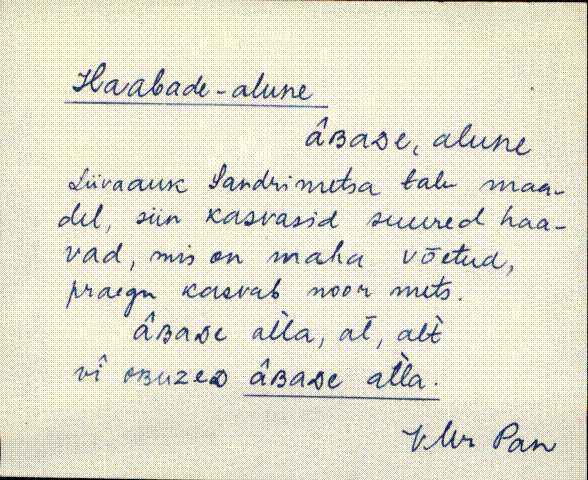 Haabade-alune
âʙᴀᴅᴇ, alune
Liivaauk Sandrimetsa talu maa-
del, siin kasvasid suured haa-
vad, mis on maha võetud,
praegu kasvab noor mets.
âʙᴀᴅᴇ al̀la, al̄, al̀t
vî oʙuzeᴅ âʙᴀᴅᴇ al̀la.
VMr Pan